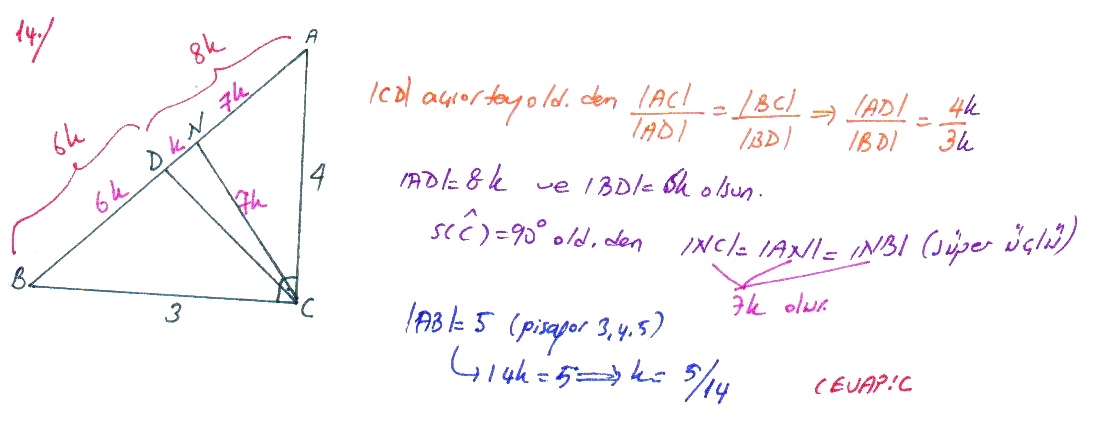 14./
A
8k
7k
N
k
D
6k
6k
7k
4
B
3
C
|CD| açıortay old. den |AC|/|AD| = |BC|/|BD| ⇒ |AD|/|BD| = 4k/3k
|AD|=8k ve |BD|=6k olsun.
s(Ĉ)=90° old. den |NC|=|AN|=|NB| (süper üçlü)
7k olur.
|AB|=5 (pisagor 3,4,5)
↳14k=5⟹k=5/14
CEVAP:C